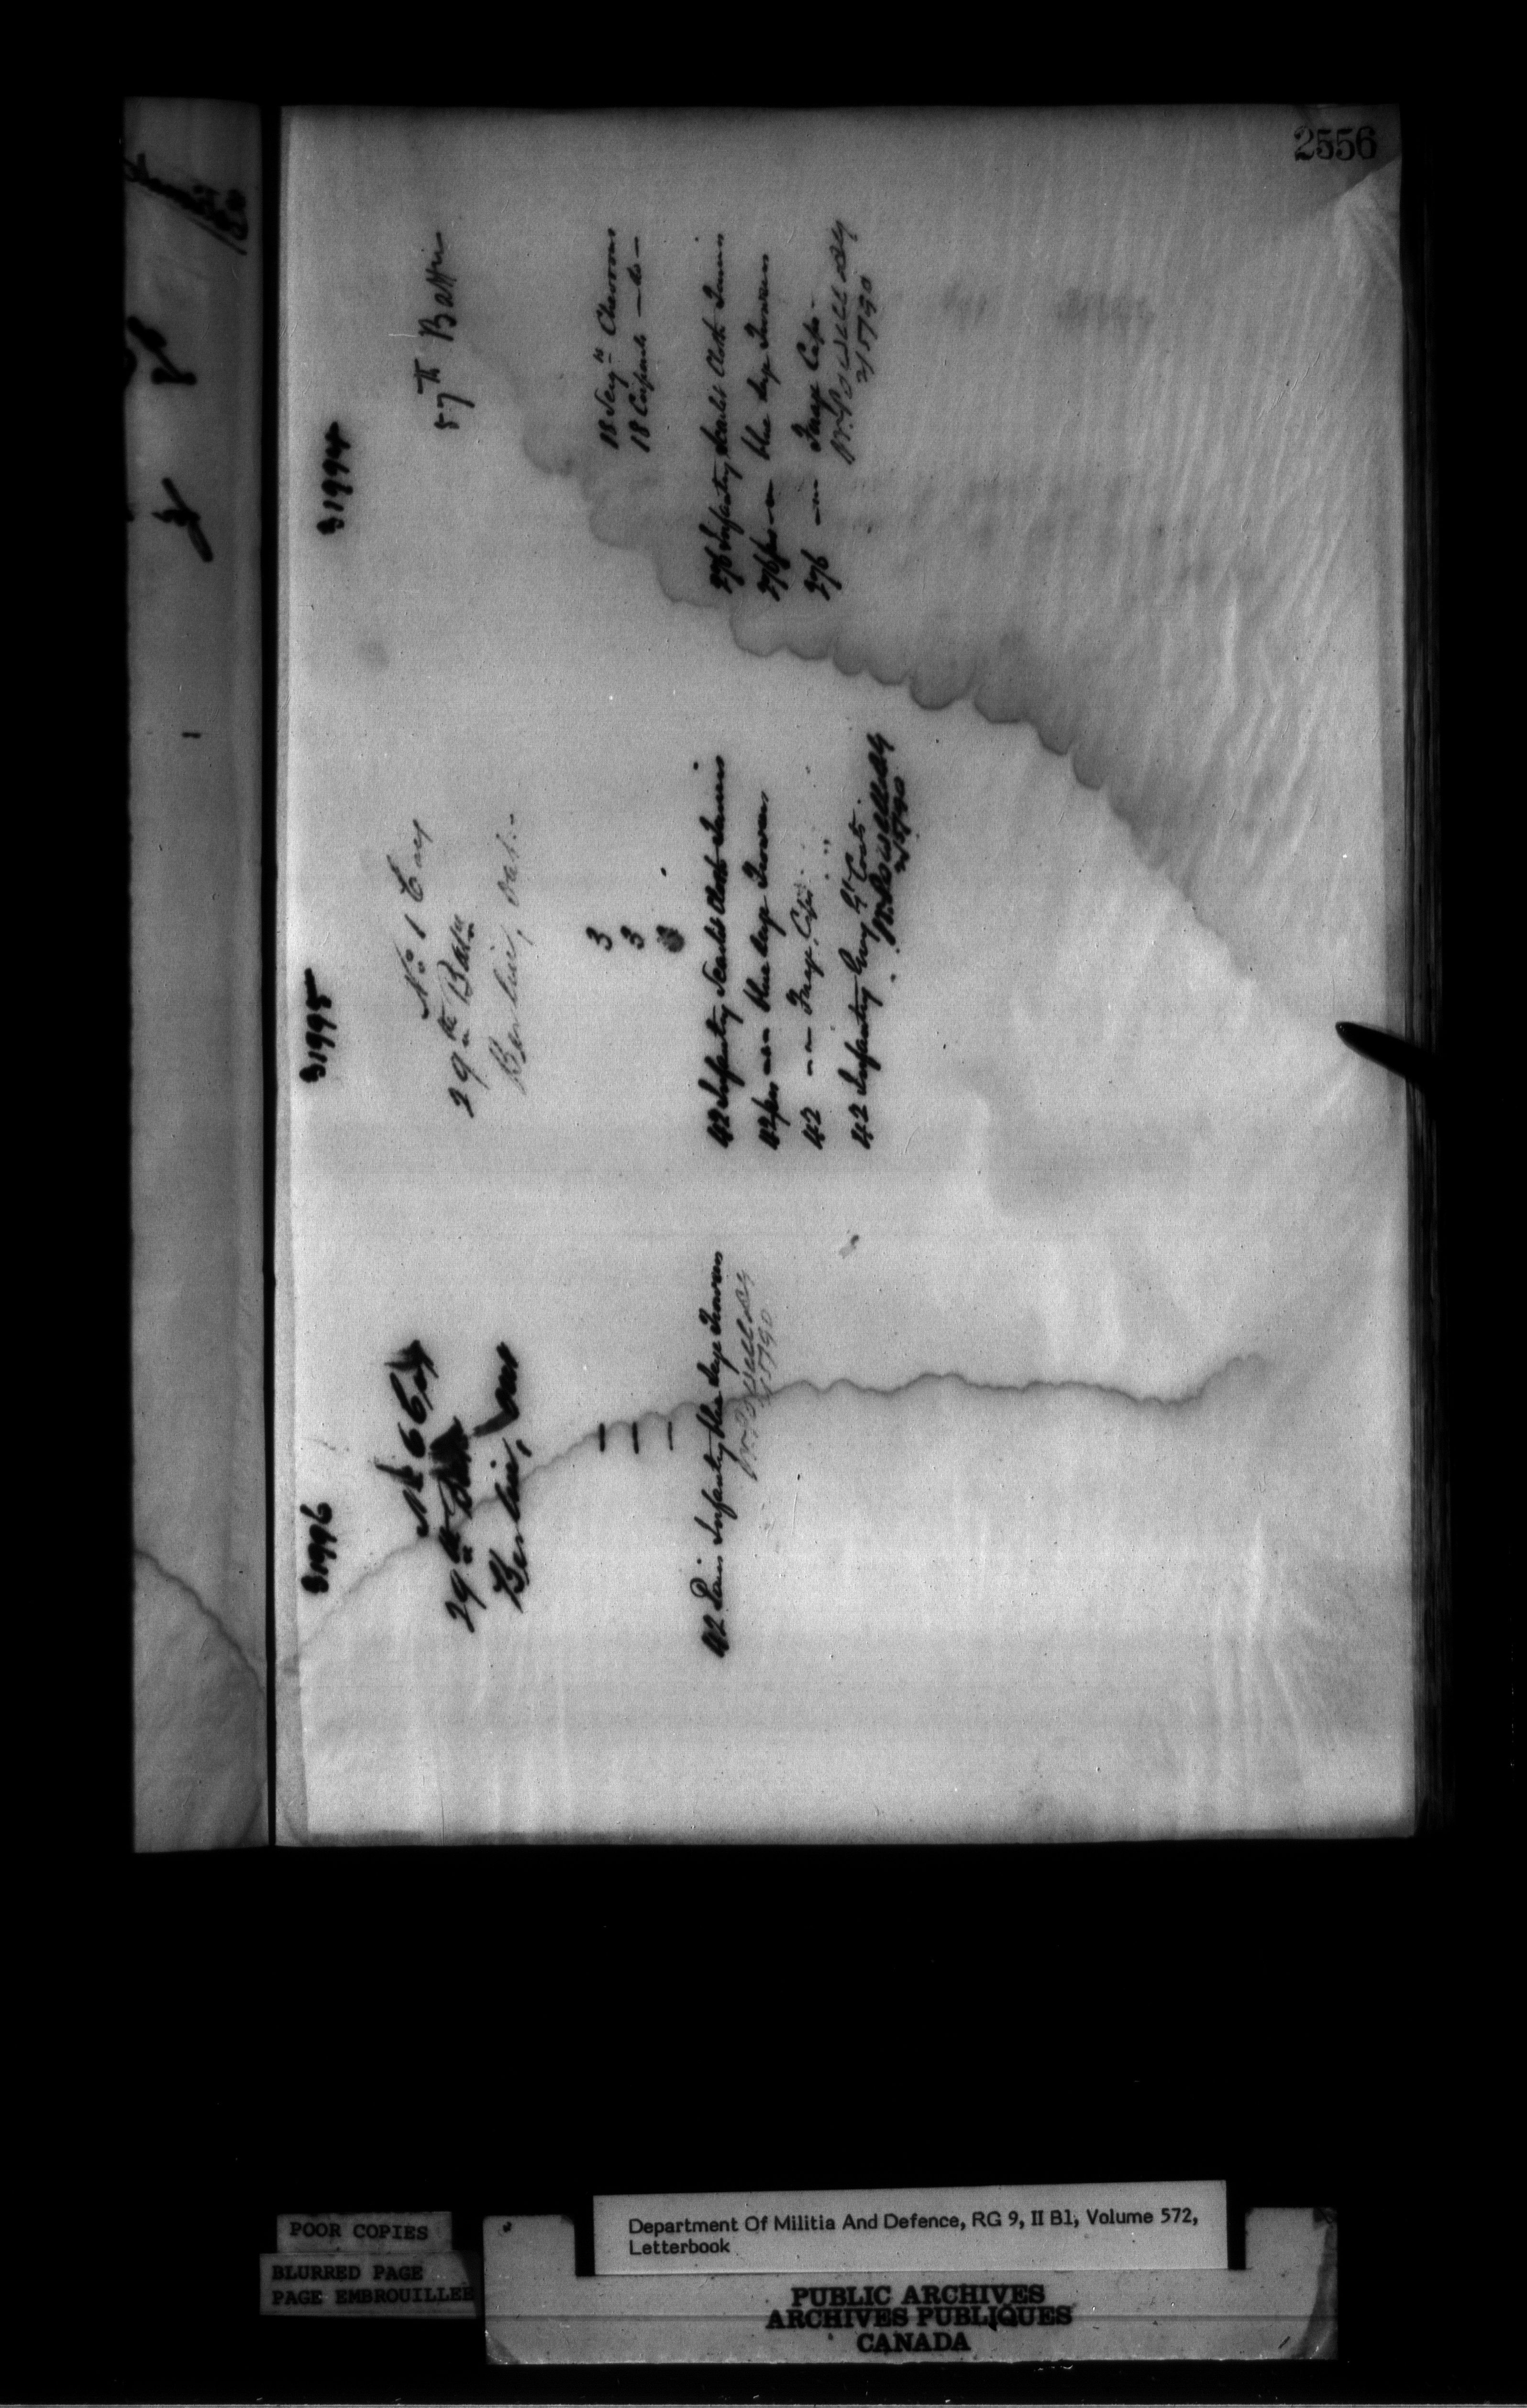 2556
31994
57th Battn
18 Sergts Chevrons
18 Corporals — do —
276 Infantry Scarlet Cloth Tunics
276 prs — " — blue serge Trowsers
276 — " — Forage Caps
W. Powell AG
2/5/90
31995
No 1 Coy
29th Battn
Berlin, Ont.
3
3
42 Infantry Scarlet Cloth Tunics
42 prs — " — blue serge Trowsers
42 — " — Forage Caps
42 Infantry Grey Gt Coats
W. Powell AG
2/5/90
31996
No 6 Coy
29th Battn
Berlin, Ont
—
—
—
42 Pairs Infantry blue serge Trowsers
W. Powell AG
2/5/90
POOR COPIES
BLURRED PAGE
PAGE EMBROUILLEE
Department Of Militia And Defence, RG 9, II B1, Volume 572,
Letterbook
PUBLIC ARCHIVES
ARCHIVES PUBLIQUES
CANADA